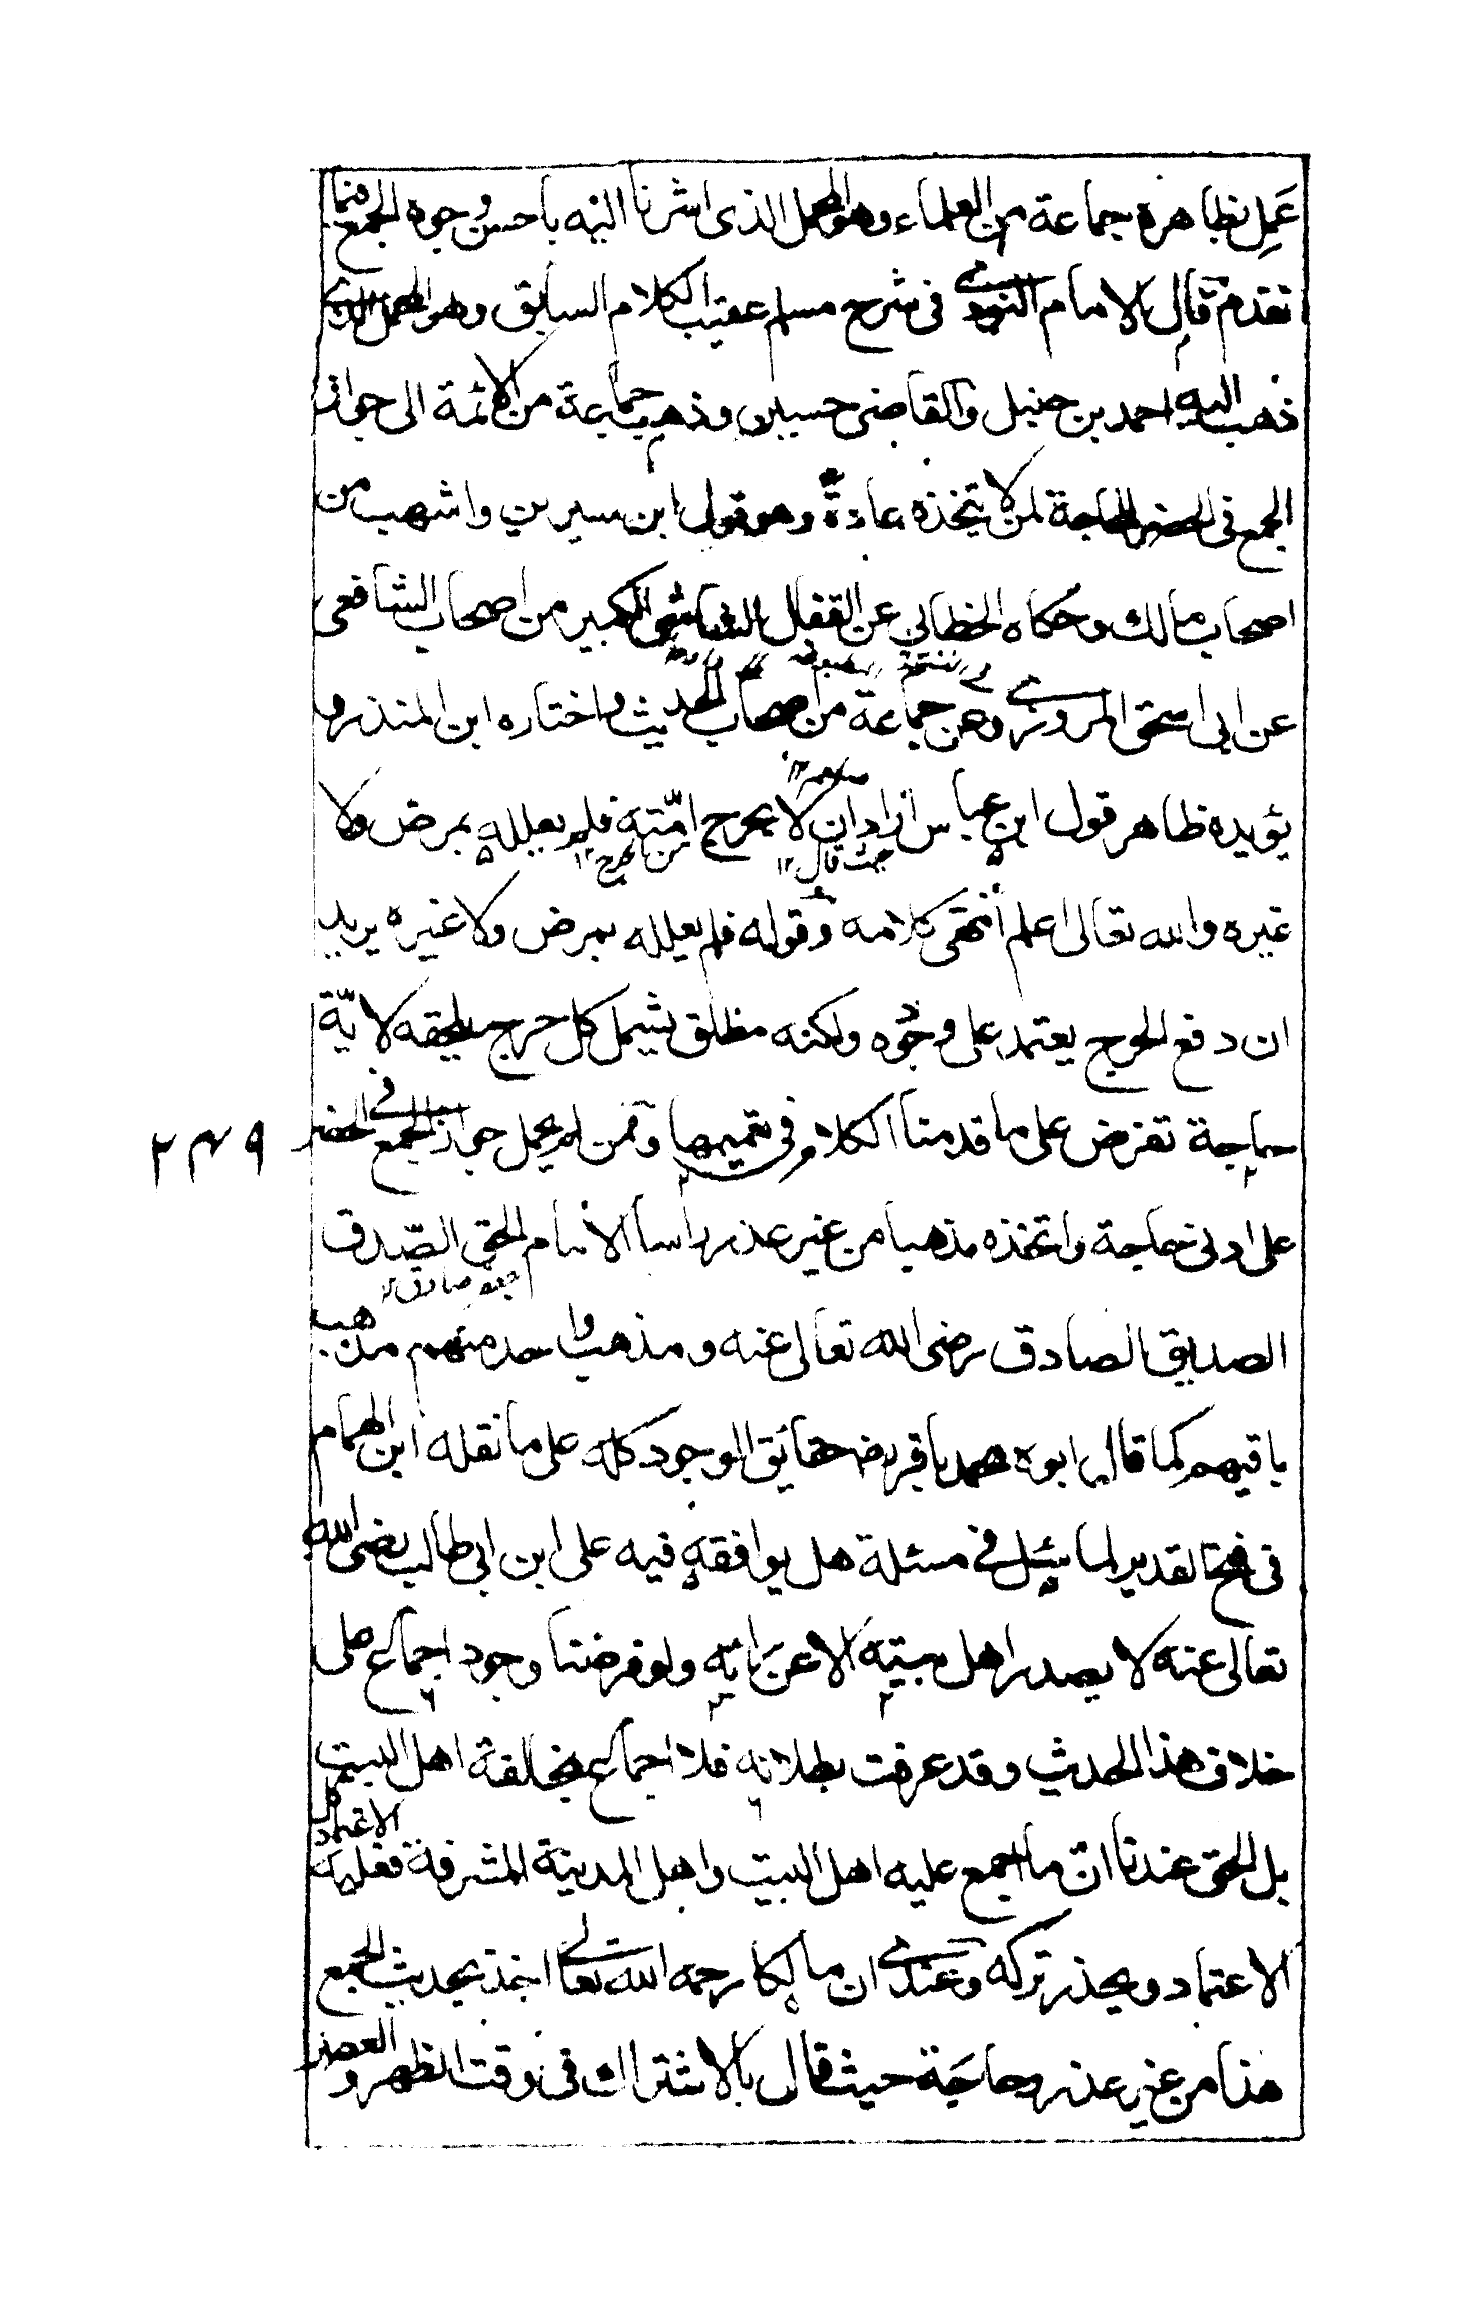 عمل بظاهره جماعة من العلماء وهو المحمل الذى اشرنا اليه باحسن وجوه الجمع فيما
تقدم قال الامام النووي فى شرح مسلم عقيب الكلام السابق وهو المحمل الذي
ذهب اليه احمد بن حنبل والقاضى حسين وذهب جماعة من الائمة الى جواز
الجمع فى الحضر للحاجة لمن لا يتخذه عادة وهو قول ابن سيرين واشهب من
اصحاب مالك وحكاه الخطابي عن القفال الشاشى الكبير من اصحاب الشافعى
عن ابى اسحق المروزي وعن جماعة من اصحاب الحديث واختاره ابن المنذر و
يؤيده ظاهر قول ابن عباس اراد ان لا يحرج امّته فلم يعلله بمرض ولا
حيث قال ١٢
من تحرج ١٢
غيره والله تعالى اعلم انتهى كلامه وقوله فلم يعلله بمرض ولا غيره يريد
ان دفع الحرج يعتمد على وجوه ولكنه مطلق يشمل كل حرج يلحقه لايّة
حاجة تفرض على ما قدمنا الكلام فى تعميمها وممن لم يحمل جواز الجمع فى الحضر
٢٤٩
على ادنى حاجة واتخذه مذهبا من غير عذر راسا الامام الحق الصّدق
جعفر صادق
الصديق الصادق رضى الله تعالى عنه ومذهب واحد منهم مذهب
باقيهم كما قال ابوه محمد باقر رضـ حقائق الوجود كله على ما نقله ابن الهمام
فى فتح القدير لما سئل فى مسئلة هل يوافقه فيه على ابن ابى طالب رضى الله
تعالى عنه لا يصدر اهل بيته الا عن رأيه ولو فرضنا وجود اجماع على
خلاف هذا الحديث وقد عرفت بطلانه فلا اجماع بمخالفة اهل البيت
بل الحق عندنا انّ ما اجمع عليه اهل البيت واهل المدينة المشرفة فعليه
الاعتماد ويحذر تركه وعندي ان مالكا رحمه الله تعالى اخذ بحديث الجمع
هذا من غير عذر وحاجة حيث قال بالاشتراك فى وقت الظهر و العصر